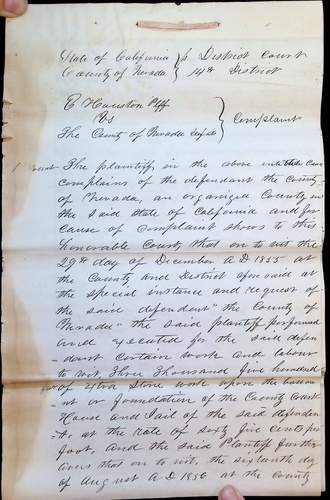 State of California } District Court
County of Nevada } 14th District
E Houston Plff
Vs } Complaint
The County of Nevada Defnt
The plaintiff, in the above entitled
complains of the defendant the County
of Nevada, an organized County in
the said State of California and for
cause of Complaint shows to this
honorable Court that on to wit the
29th day of December A D 1855 at
the County and District aforesaid at
the special instance and request of
the said defendent "the County of
Nevada" the said plaintiff performed
and executed for the said defen
dant certain work and labour
to wit Three Thousand five hundred
of extra Stone work upon the basem
ent or foundation of the County Court
House and Jail of the said defenden
t, at the rate of sixty five cents per
foot, and the said Plaintiff further
avers that on to wit, the sixteenth day
of August A D 1856 at the County